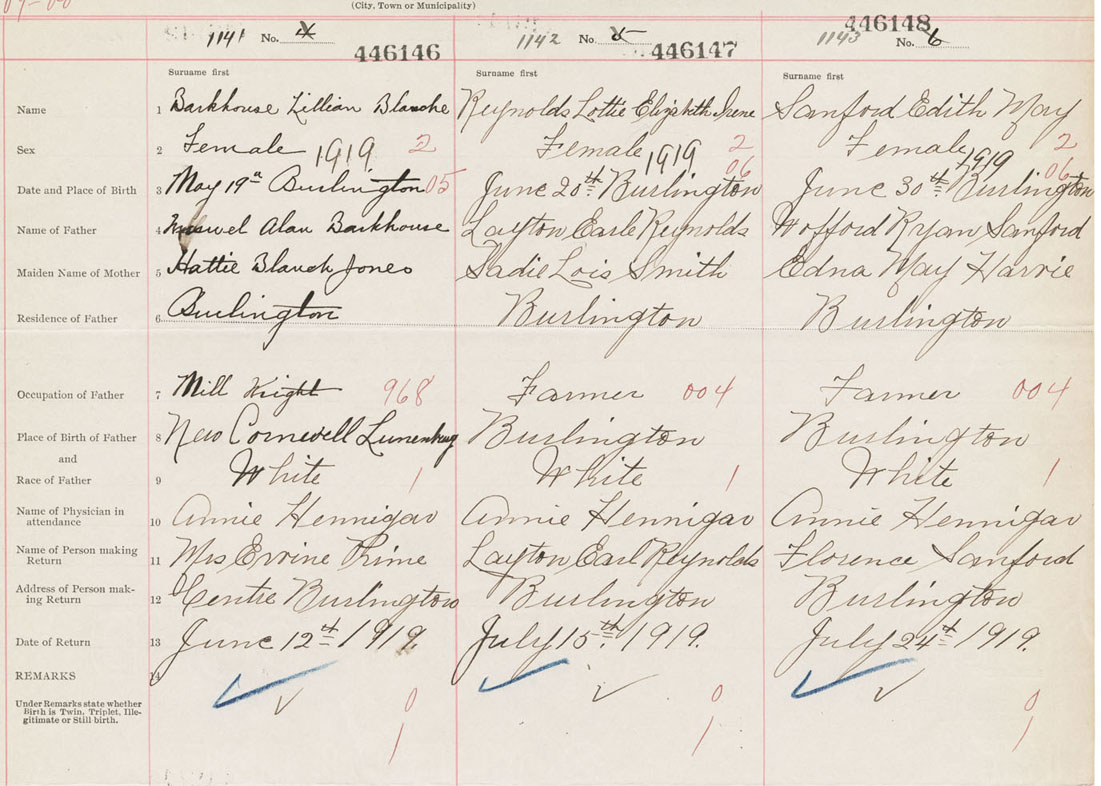 (City, Town or Municipality)
1141 No. 4 446146 1142 No. 5 446147 1143 No. 6 446148
Surname first Surname first Surname first
Name 1 Barkhouse Lillian Blanche Reynolds Lottie Elizabeth Irene Sanford Edith May
Sex 2 Female 1919 2 Female 1919 2 Female 1919 2
Date and Place of Birth 3 May 19th Burlington 05 June 20th Burlington 06 June 30th Burlington 06
Name of Father 4 Alan Barkhouse Layton Earle Reynolds Wofford Ryan Sanford
Maiden Name of Mother 5 Hattie Blanch Jones Sadie Lois Smith Edna May Harvie
Residence of Father 6 Burlington Burlington Burlington
Occupation of Father 7 Mill Wright 968 Farmer 004 Farmer 004
Place of Birth of Father 8 New Cornwell Lunenburg Burlington Burlington
and
Race of Father 9 White 1 White 1 White 1
Name of Physician in
attendance 10 Annie Hennigar Annie Hennigar Annie Hennigar
Name of Person making
Return 11 Mrs Ervine Prime Layton Earl Reynolds Florence Sanford
Address of Person mak-
ing Return 12 Centre Burlington Burlington Burlington
Date of Return 13 June 12th 1919. July 15th 1919. July 24th 1919.
REMARKS 14
Under Remarks state whether
Birth is Twin, Triplet, Ille-
gitimate or Still birth.
0 0 0
1 1 1